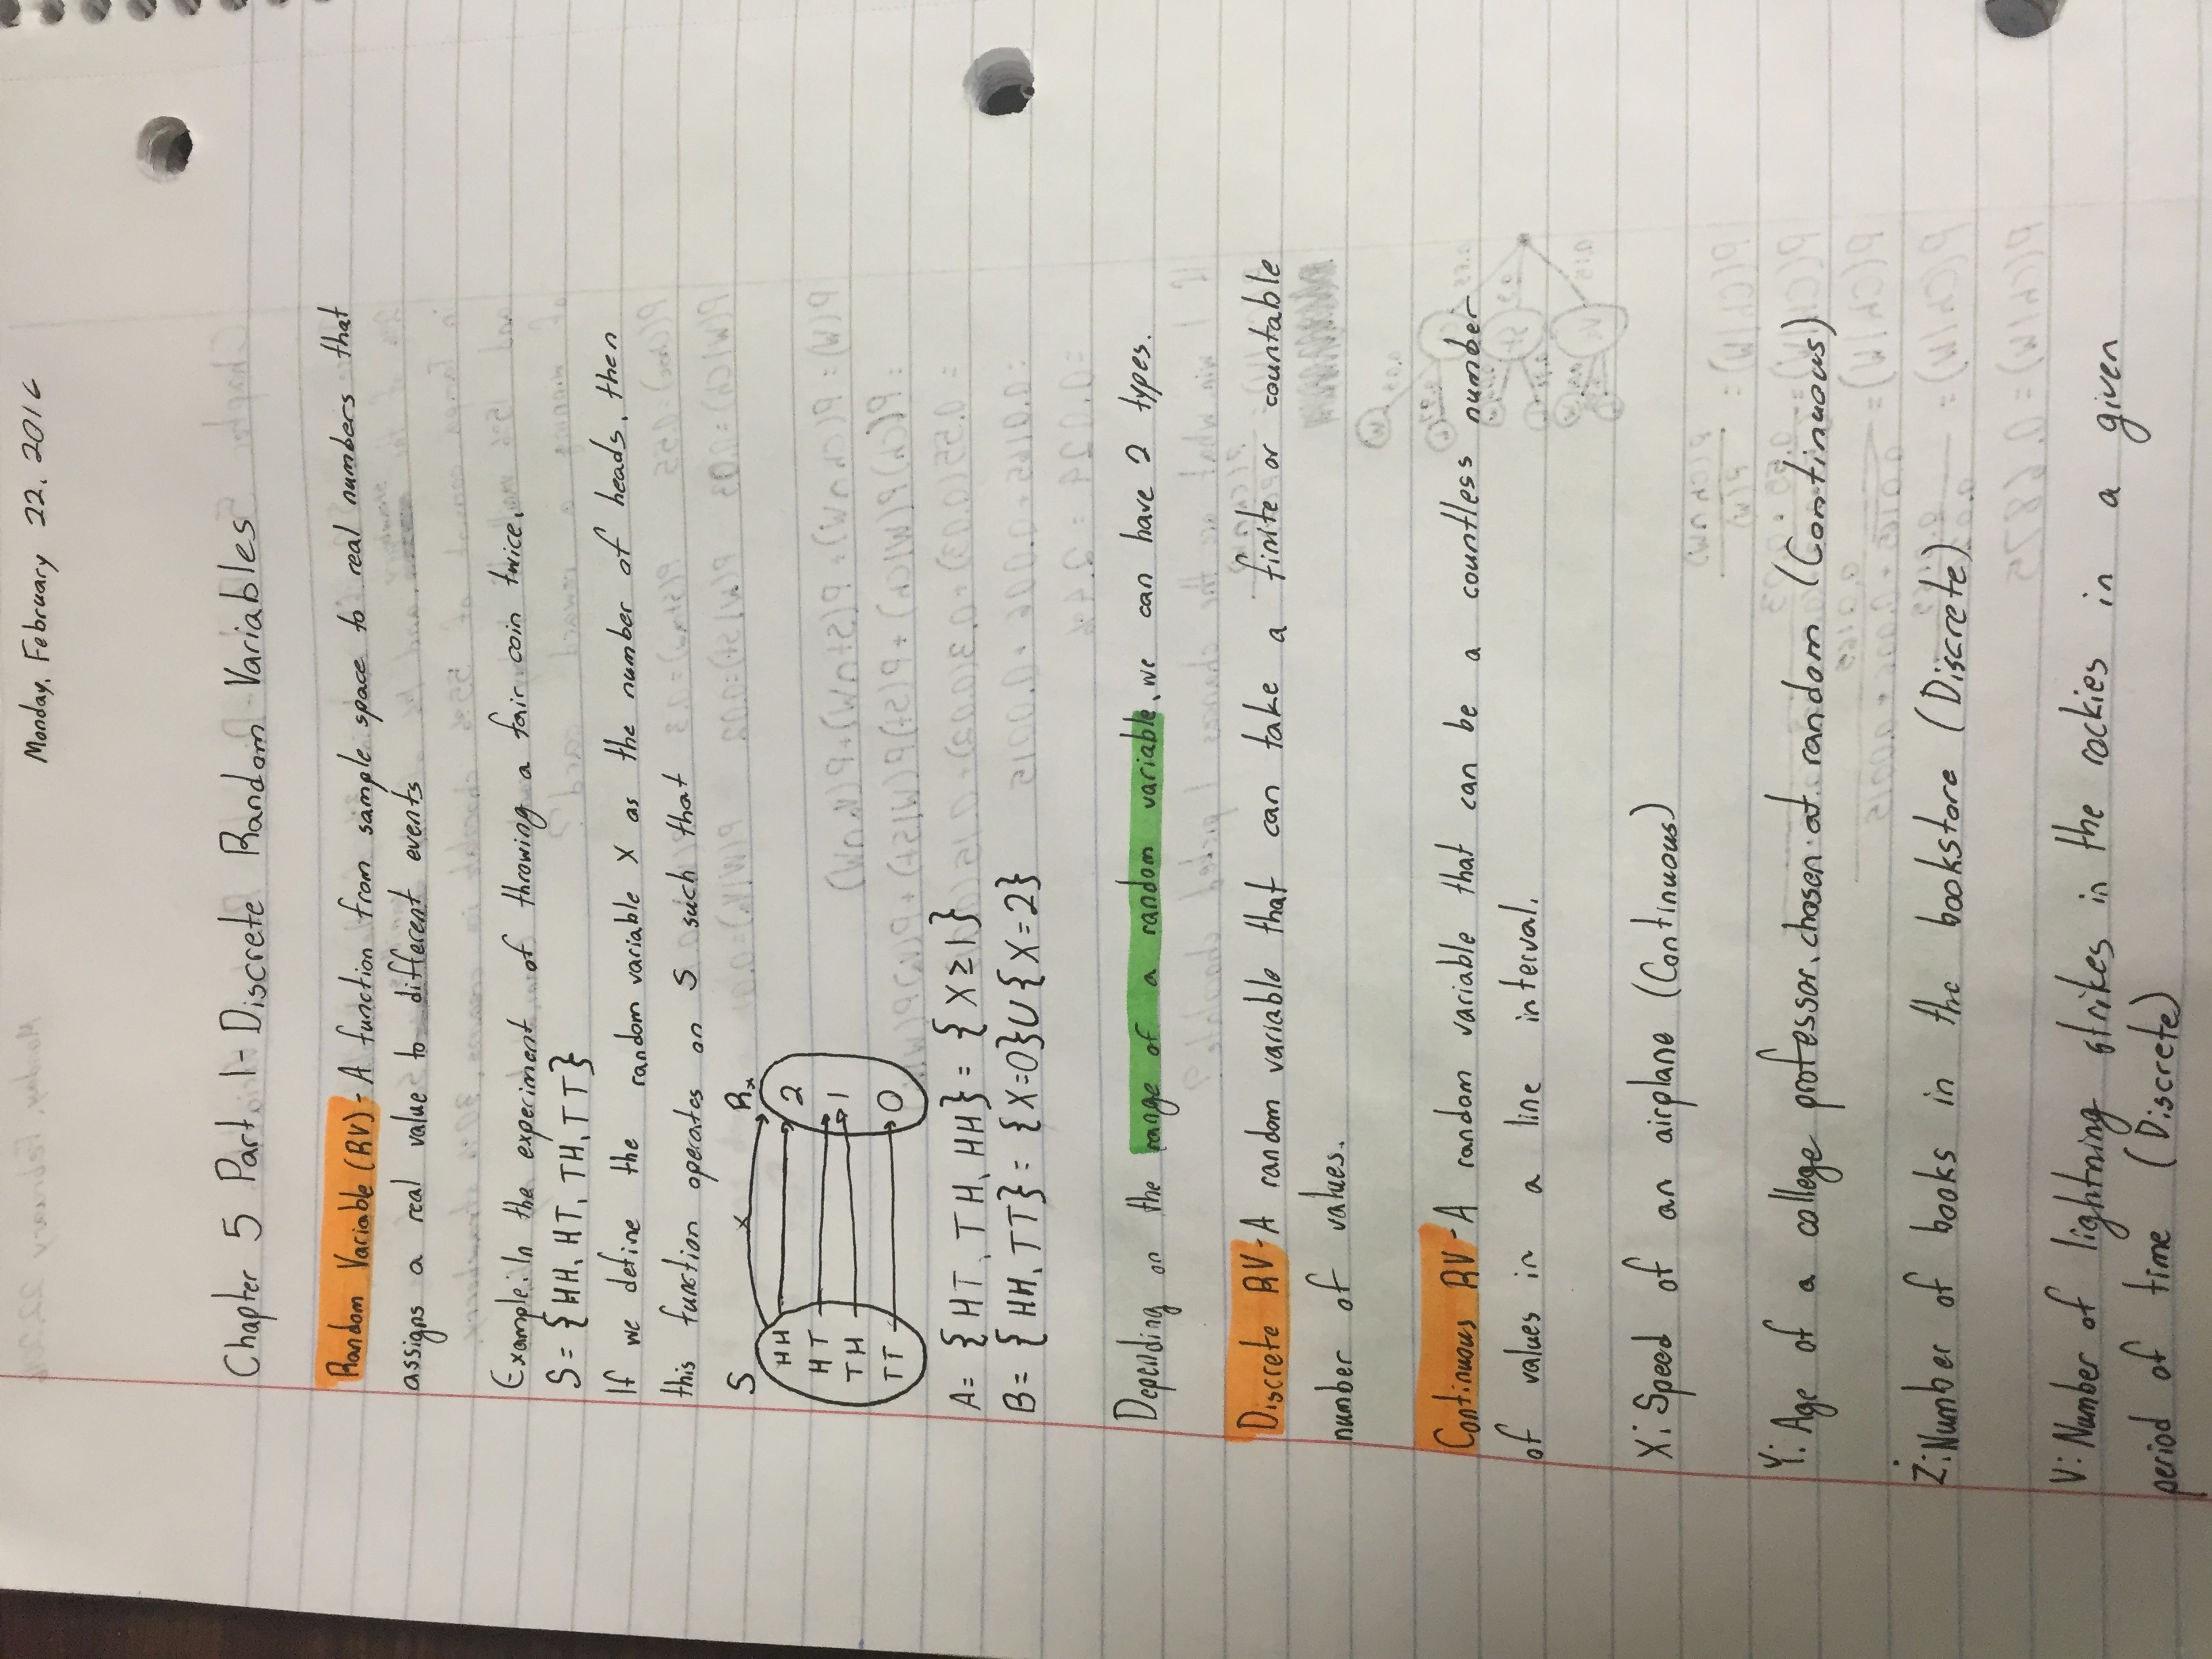 Monday, February 22, 2016
Chapter 5 Part 1 - Discrete Random Variables
Random Variable (RV) - A function from sample space to real numbers that
assigns a real value to different events
Example: In the experiment of throwing a fair coin twice,
S = {HH, HT, TH, TT}
If we define the random variable X as the number of heads, then
this function operates on S such that
S X Rx
HH 2
HT 1
TH
TT 0
A = {HT, TH, HH} = {X ≥ 1}
B = {HH, TT} = {X=0}U{X=2}
Depending on the range of a random variable, we can have 2 types.
Discrete RV - A random variable that can take a finite or countable
number of values.
Continuous RV - A random variable that can be a countless number
of values in a line interval.
X: Speed of an airplane (Continuous)
Y: Age of a college professor, chosen at random (Continuous)
Z: Number of books in the bookstore (Discrete)
V: Number of lightning strikes in the rockies in a given
period of time (Discrete)